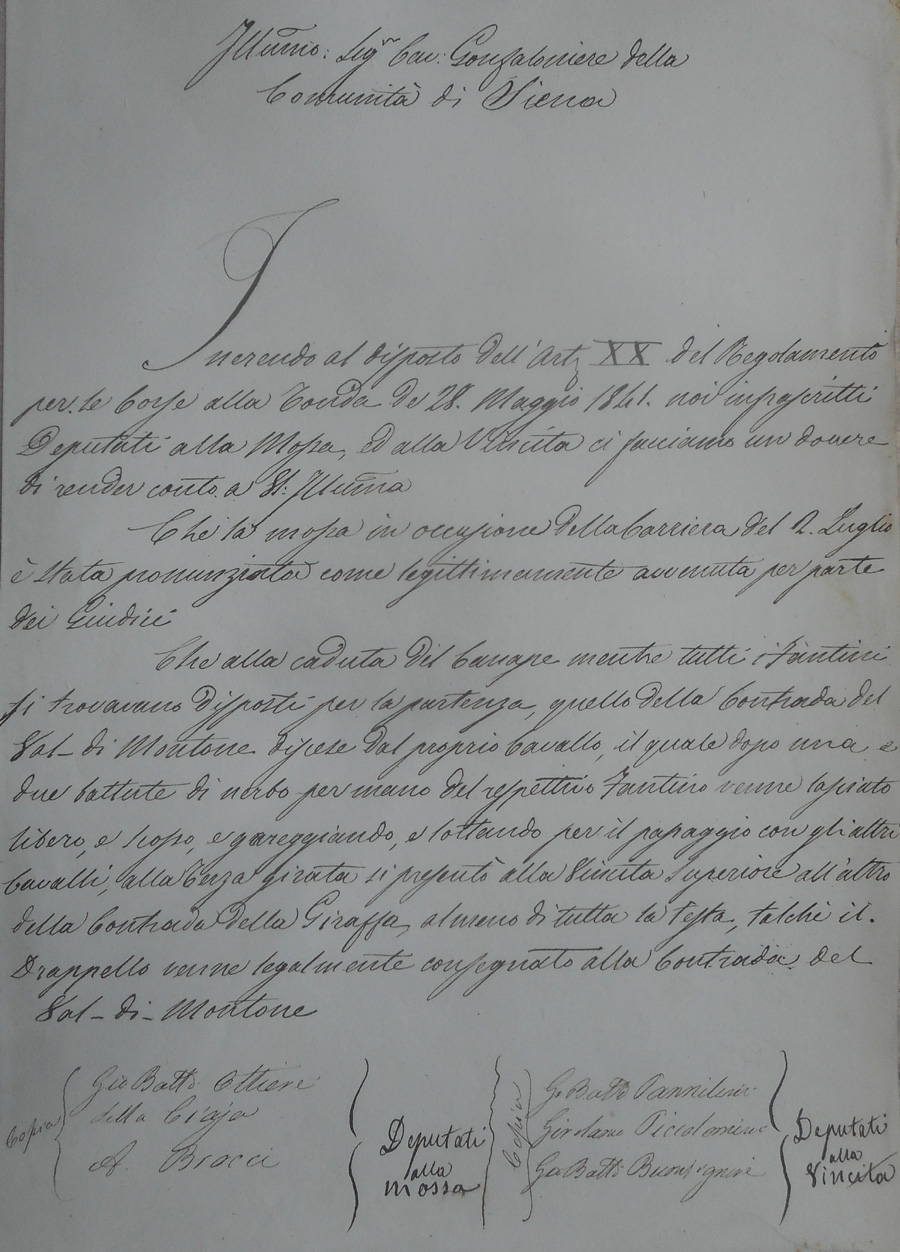 Illumo: Sigr Cav: Gonfaloniere della
Comunità di Siena
Inerendo al disposto dell'Art. XX del Regolamento
per le Corse alla Tonda de 28. Maggio 1841. noi infrascritti
Deputati alla Mossa, ed alla Vincita ci facciamo un dovere
di render conto a Illuma
Che la mossa in occasione della Carriera del 2. Luglio
è stata pronunziata come legittimamente avvenuta per parte
dei Giudici
Che alla caduta del Canape mentre tutti i Fantini
si trovavano disposti per la partenza, quello della Contrada del
Val-di Montone discese dal proprio Cavallo, il quale dopo una e
due battute di nerbo per mano del respettivo Fantino venne lasciato
libero, e scosso, e gareggiando, e lottando per il passaggio con gli altri
Cavalli, alla terza girata si presentò alla Vincita superiore all'altro
della Contrada della Giraffa, almeno di tutta la testa, talchè il
Drappello venne legalmente consegnato alla Contrada del
Val-di-Montone
Gio Batta Ottieri
Copia della Ciaja
A. Brocci
Deputati
alla
Mossa
Copia
Go Batta Pannilini
Girolamo Piccolomini
Gio Batta Buonsignori
Deputati
alla
Vincita